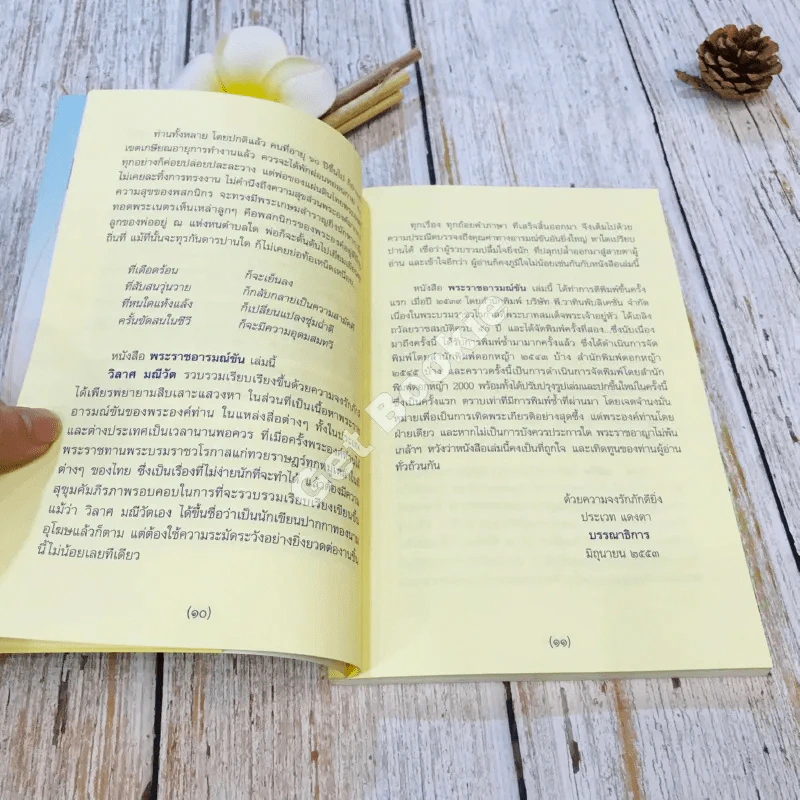 ท่านทั้งหลาย โดยปกติแล้ว คนที่อายุ ๖๐ ปีขึ้นไป
เขตเกษียณอายุการทำงานแล้ว ควรจะได้พักผ่อนหย่อนกาย
ทุกอย่างก็ค่อยปลอบปละละวาง แต่พ่อของแผ่นดินไทย
ไม่เคยละทิ้งการทรงงาน ไม่คำนึงถึงความสุขส่วนพระองค์
ความสุขของพสกนิกร จะทรงมีพระเกษมสำราญยิ่งนัก
ทอดพระเนตรเห็นเหล่าลูกๆ คือพสกนิกรของพระองค์
ลูกของพ่ออยู่ ณ แห่งหนตำบลใด พ่อก็จะดั้นด้นไป
ถิ่นที่ แม้ที่นั้นจะทุรกันดารปานใด ก็ไม่เคยย่อท้อเหนื่อยหน่าย
ที่เดือดร้อน ก็จะเย็นลง
ที่สับสนวุ่นวาย ก็กลับกลายเป็นความสามัคคี
ที่หนใดแห้งแล้ง ก็เปลี่ยนแปลงชุ่มฉ่ำดี
ครั้นขัดสนในชีวี ก็จะมีความอุดมสมทวี
หนังสือ พระราชอารมณ์ขัน เล่มนี้
วิลาศ มณีวัต รวบรวมเรียบเรียงขึ้นด้วยความจงรักภักดี
ได้เพียรพยายามสืบเสาะแสวงหา ในส่วนที่เป็นเนื้อหาพระราช
อารมณ์ขันของพระองค์ท่าน ในแหล่งสื่อต่างๆ ทั้งใน
และต่างประเทศเป็นเวลานานพอควร ที่เมื่อครั้งพระองค์
พระราชทานพระบรมราชวโรกาสแก่ทวยราษฎร์ทุกหมู่
ต่างๆ ของไทย ซึ่งเป็นเรื่องที่ไม่ง่ายนักที่จะทำได้ แต่ต้องมีความ
สุขุมคัมภีรภาพรอบคอบในการที่จะรวบรวมเรียบเรียงเขียนขึ้น
แม้ว่า วิลาศ มณีวัตเอง ได้ขึ้นชื่อว่าเป็นนักเขียนปากกาทองนาม
อุโฆษแล้วก็ตาม แต่ต้องใช้ความระมัดระวังอย่างยิ่งยวดต่องานชิ้น
นี้ไม่น้อยเลยทีเดียว
(๑๐)
ทุกเรื่อง ทุกถ้อยคำภาษา ที่เสร็จสิ้นออกมา จึงเต็มไปด้วย
ความประณีตบรรจงถึงคุณค่าทางอารมณ์ขันอันยิ่งใหญ่ หาใดเปรียบ
ปานได้ เชื่อว่าผู้รวบรวมปลื้มใจยิ่งนัก ที่ปลุกปล้ำออกมาสู่สายตาผู้
อ่าน และเข้าใจอีกว่า ผู้อ่านก็คงภูมิใจไม่น้อยเช่นกันกับหนังสือเล่มนี้
หนังสือ พระราชอารมณ์ขัน เล่มนี้ ได้ทำการตีพิมพ์ขึ้นครั้ง
แรก เมื่อปี ๒๕๓๙ โดยสำนักพิมพ์ บริษัท พี.วาทินพับลิเคชั่น จำกัด
เนื่องในพระบรมราชวโรกาสที่ พระบาทสมเด็จพระเจ้าอยู่หัว ได้เถลิง
ถวัลยราชสมบัติครบ ปี และได้จัดพิมพ์ครั้งที่สอง...ซึ่งนับเนื่อง
มาถึงครั้งนี้ ได้รับการพิมพ์ซ้ำมามากครั้งแล้ว ซึ่งได้ดำเนินการจัด
พิมพ์โดยสำนักพิมพ์ดอกหญ้า ๒๕๔๓ บ้าง สำนักพิมพ์ดอกหญ้า
๒๕๔๕ บ้าง และคราวครั้งนี้เป็นการดำเนินการจัดพิมพ์โดยสำนัก
พิมพ์ดอกหญ้า 2000 พร้อมทั้งได้ปรับปรุงรูปเล่มและปกขึ้นใหม่ในครั้งนี้
ซึ่งเป็นครั้งแรก ตราบเท่าที่มีการพิมพ์ซ้ำที่ผ่านมา โดยเจตจำนงมั่น
หมายเพื่อเป็นการเทิดพระเกียรติอย่างสุดซึ้ง แต่พระองค์ท่านโดย
ฝ่ายเดียว และหากไม่เป็นการบังควรประการใด พระราชอาญาไม่พ้น
เกล้าฯ หวังว่าหนังสือเล่มนี้คงเป็นที่ถูกใจ และเทิดทูนของท่านผู้อ่าน
ทั่วถ้วนกัน
ด้วยความจงรักภักดียิ่ง
ประเวท แดงดา
บรรณาธิการ
มิถุนายน ๒๕๕๓
(๑๑)
Get Bookie